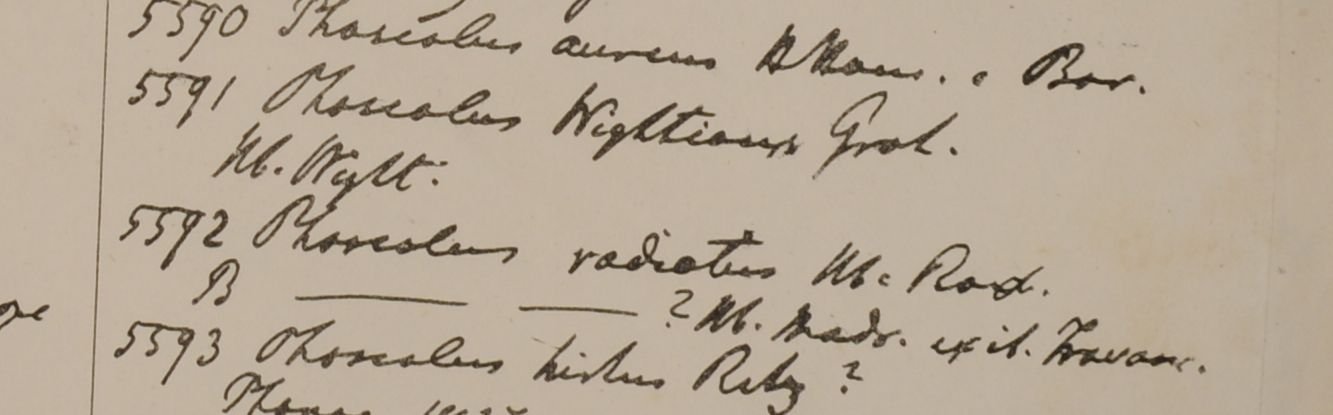 5590 Phaseolus aureus Ham. . Bar.
5591 Phaseolus Wightianus Grah.
Hb. Wight.
5592 Phaseolus radiatus Hb. Rox.
B — — ? Hb. Madr. exit. Travanc.
5593 Phaseolus hirtus Retz ?